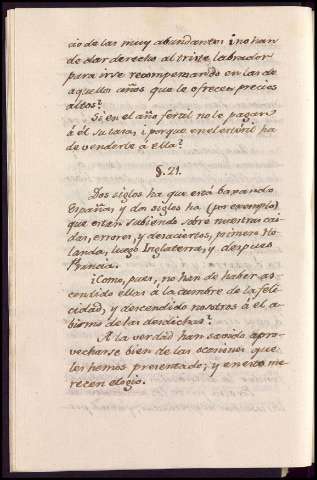 cio de las muy abundantes ¿no han
de dar derecho al triste labrador
para irse recompensando en las de
aquellos años que le ofrecen precios
altos?
Si en el año fertil no le pagan
á él su tasa, ¿porque en el esteril ha
de venderle á ella?
§. 21.
Dos siglos ha que está baxando
España, y dos siglos ha (por exemplo)
que estan subiendo sobre nuestras cai-
das, errores, y desaciertos, primero Ho-
landa, luego Inglaterra, y despues
Francia.
¿Como, pues, no han de haber as-
cendido ellas á la cumbre de la feli-
cidad, y descendido nosotros á el a-
bismo de las desdichas?
A la verdad han savido apro-
vecharse bien de las ocasiones que
les hemos presentado; y en esto me-
recen elogio.